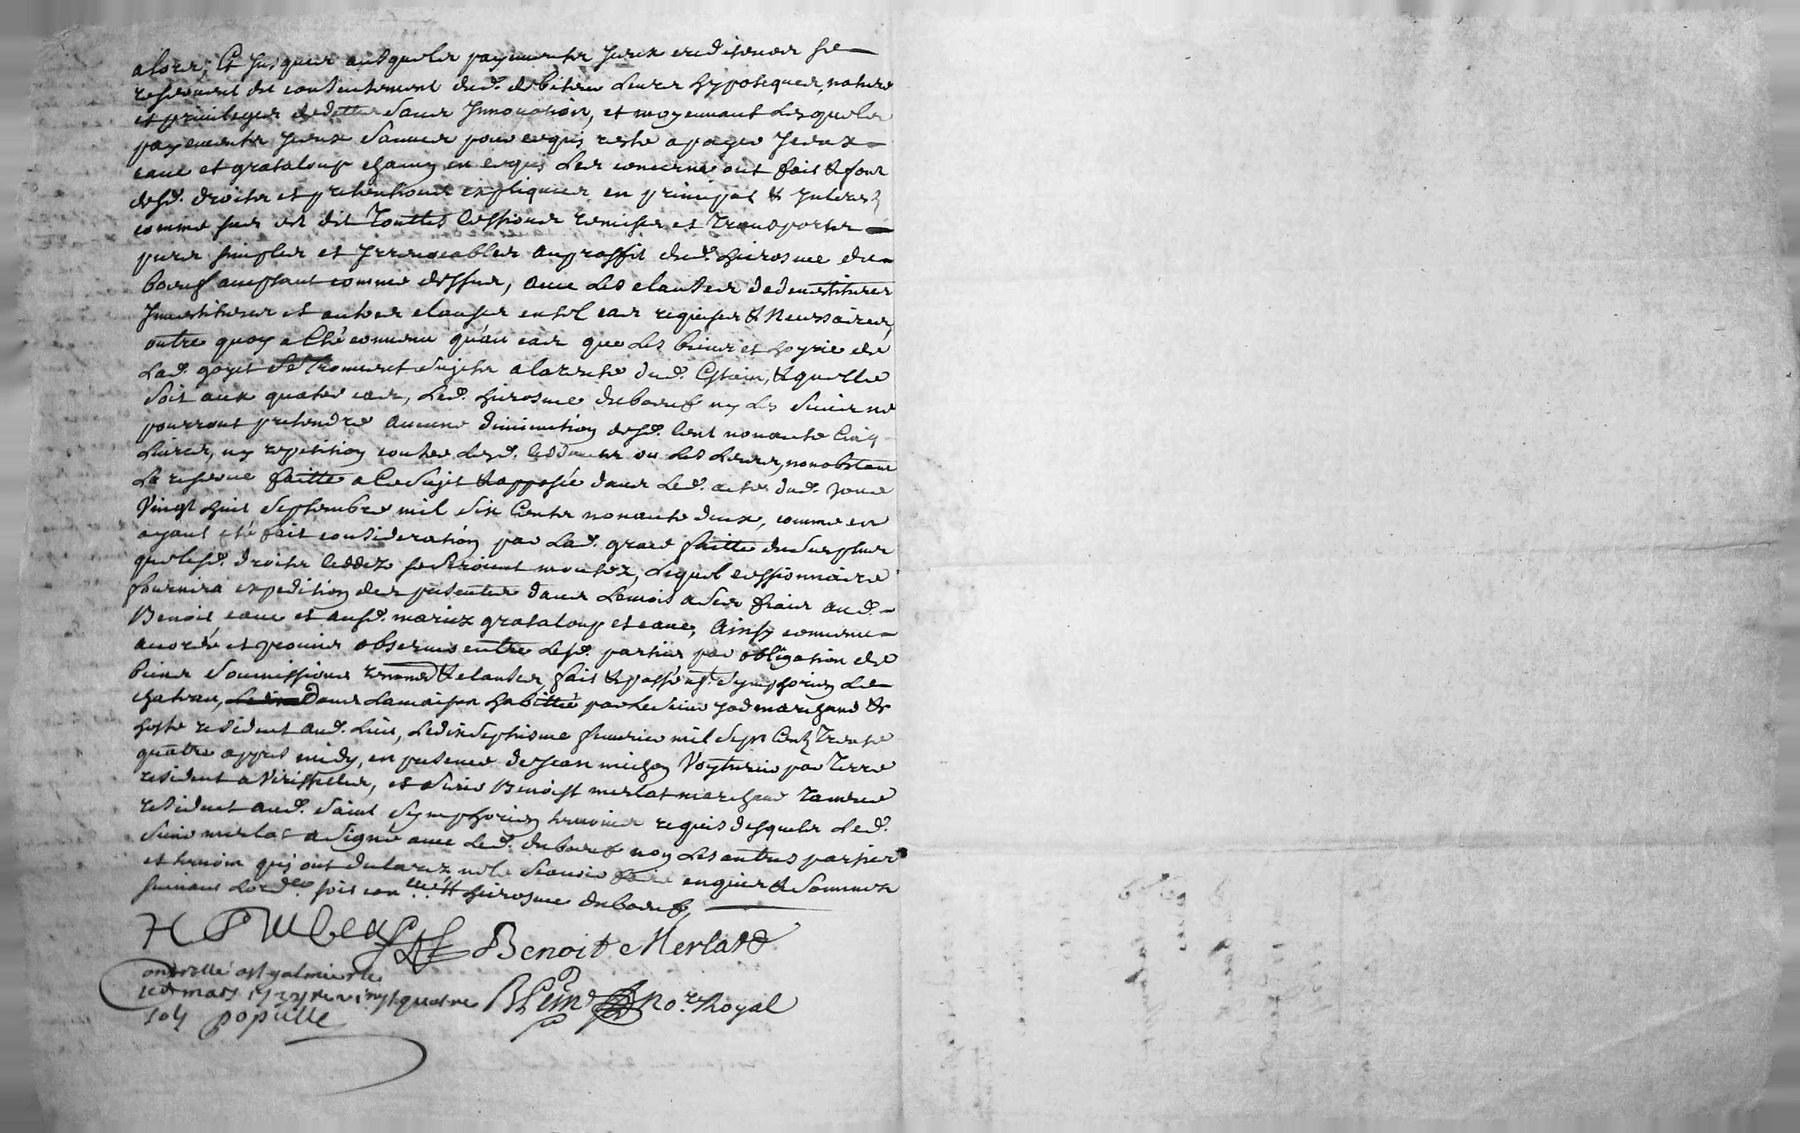 alors, Et jusques ausquels payements jceux crediteurs se
reservent du consentement dud. debiteur leurs hypoteques, nature
et privileges de dette sans Jnnovation, et moyennant lesquels
payements jceux sommes pour ce qui reste a payer jceux
cave et grataloup chacun en ce qui les concerne ont fait & font
desd. droits et pretentions expliquées en principal & jnterest
comme sus est dit Touttes cessions remises et transportes
pures simples et jrrevocables au proffit dud. hierosme du
boeuf acceptant comme dessus, avec les clauses de devestitures
Jnvestitures et autres clauses en tel cas requises & Necessaires,
outre quoy a Eté convenu qu'au cas que les biens et hoyrie de
lad. goyet se trouvent sujets a la rente dud. , & quelle
soit aux quatre cas, led. hierosme duboeuf ny les siens ne
pourront pretendre aucune diminution desd. Cent nonante Cinq
Livres, ny repetition contre lesd. cedants ou les leurs, nonobstant
La reserve faitte a ce sujet & apposée dans led. acte dud. jour
Vingt huit septembre mil six Cents nonante deux, comme en
ayant eté fait consideration par lad. grace faitte du surplus
que lesd. droits ceddez se seroient montez, lequel cessionnaire
fournira expedition des presentes dans le mois a ses frais aud.
Benoit cave et ausd. mariez grataloup et cave, Ainsy convenu
accordé et promis observer entre lesd. parties par obligation de
biens soumissions renonciations & clauses fait & passé a st. symphorien le
chateau, dans la maison habittée par le sieur jod marchand &
hoste resident aud. lieu, le dix septieme fevrier mil sept Cents Trente
quatre appres midy, en presence de jean michon Voyturier par Terre
resident a , et sieur Benoist merlat marchand taneur
resident aud. saint symphorien temoins requis desquels led.
sieur merlat a signé avec led. duboeuf non les autres parties
et temoin qui ont declarez ne le scavoir faire enquis & sommez
suivant l'ord.ce hierosme duboeuf,
H Dubeuf Benoit Merlat
controllé a st galmier le
mars 1734 Re vingt quatre No.re Royal
sols populle